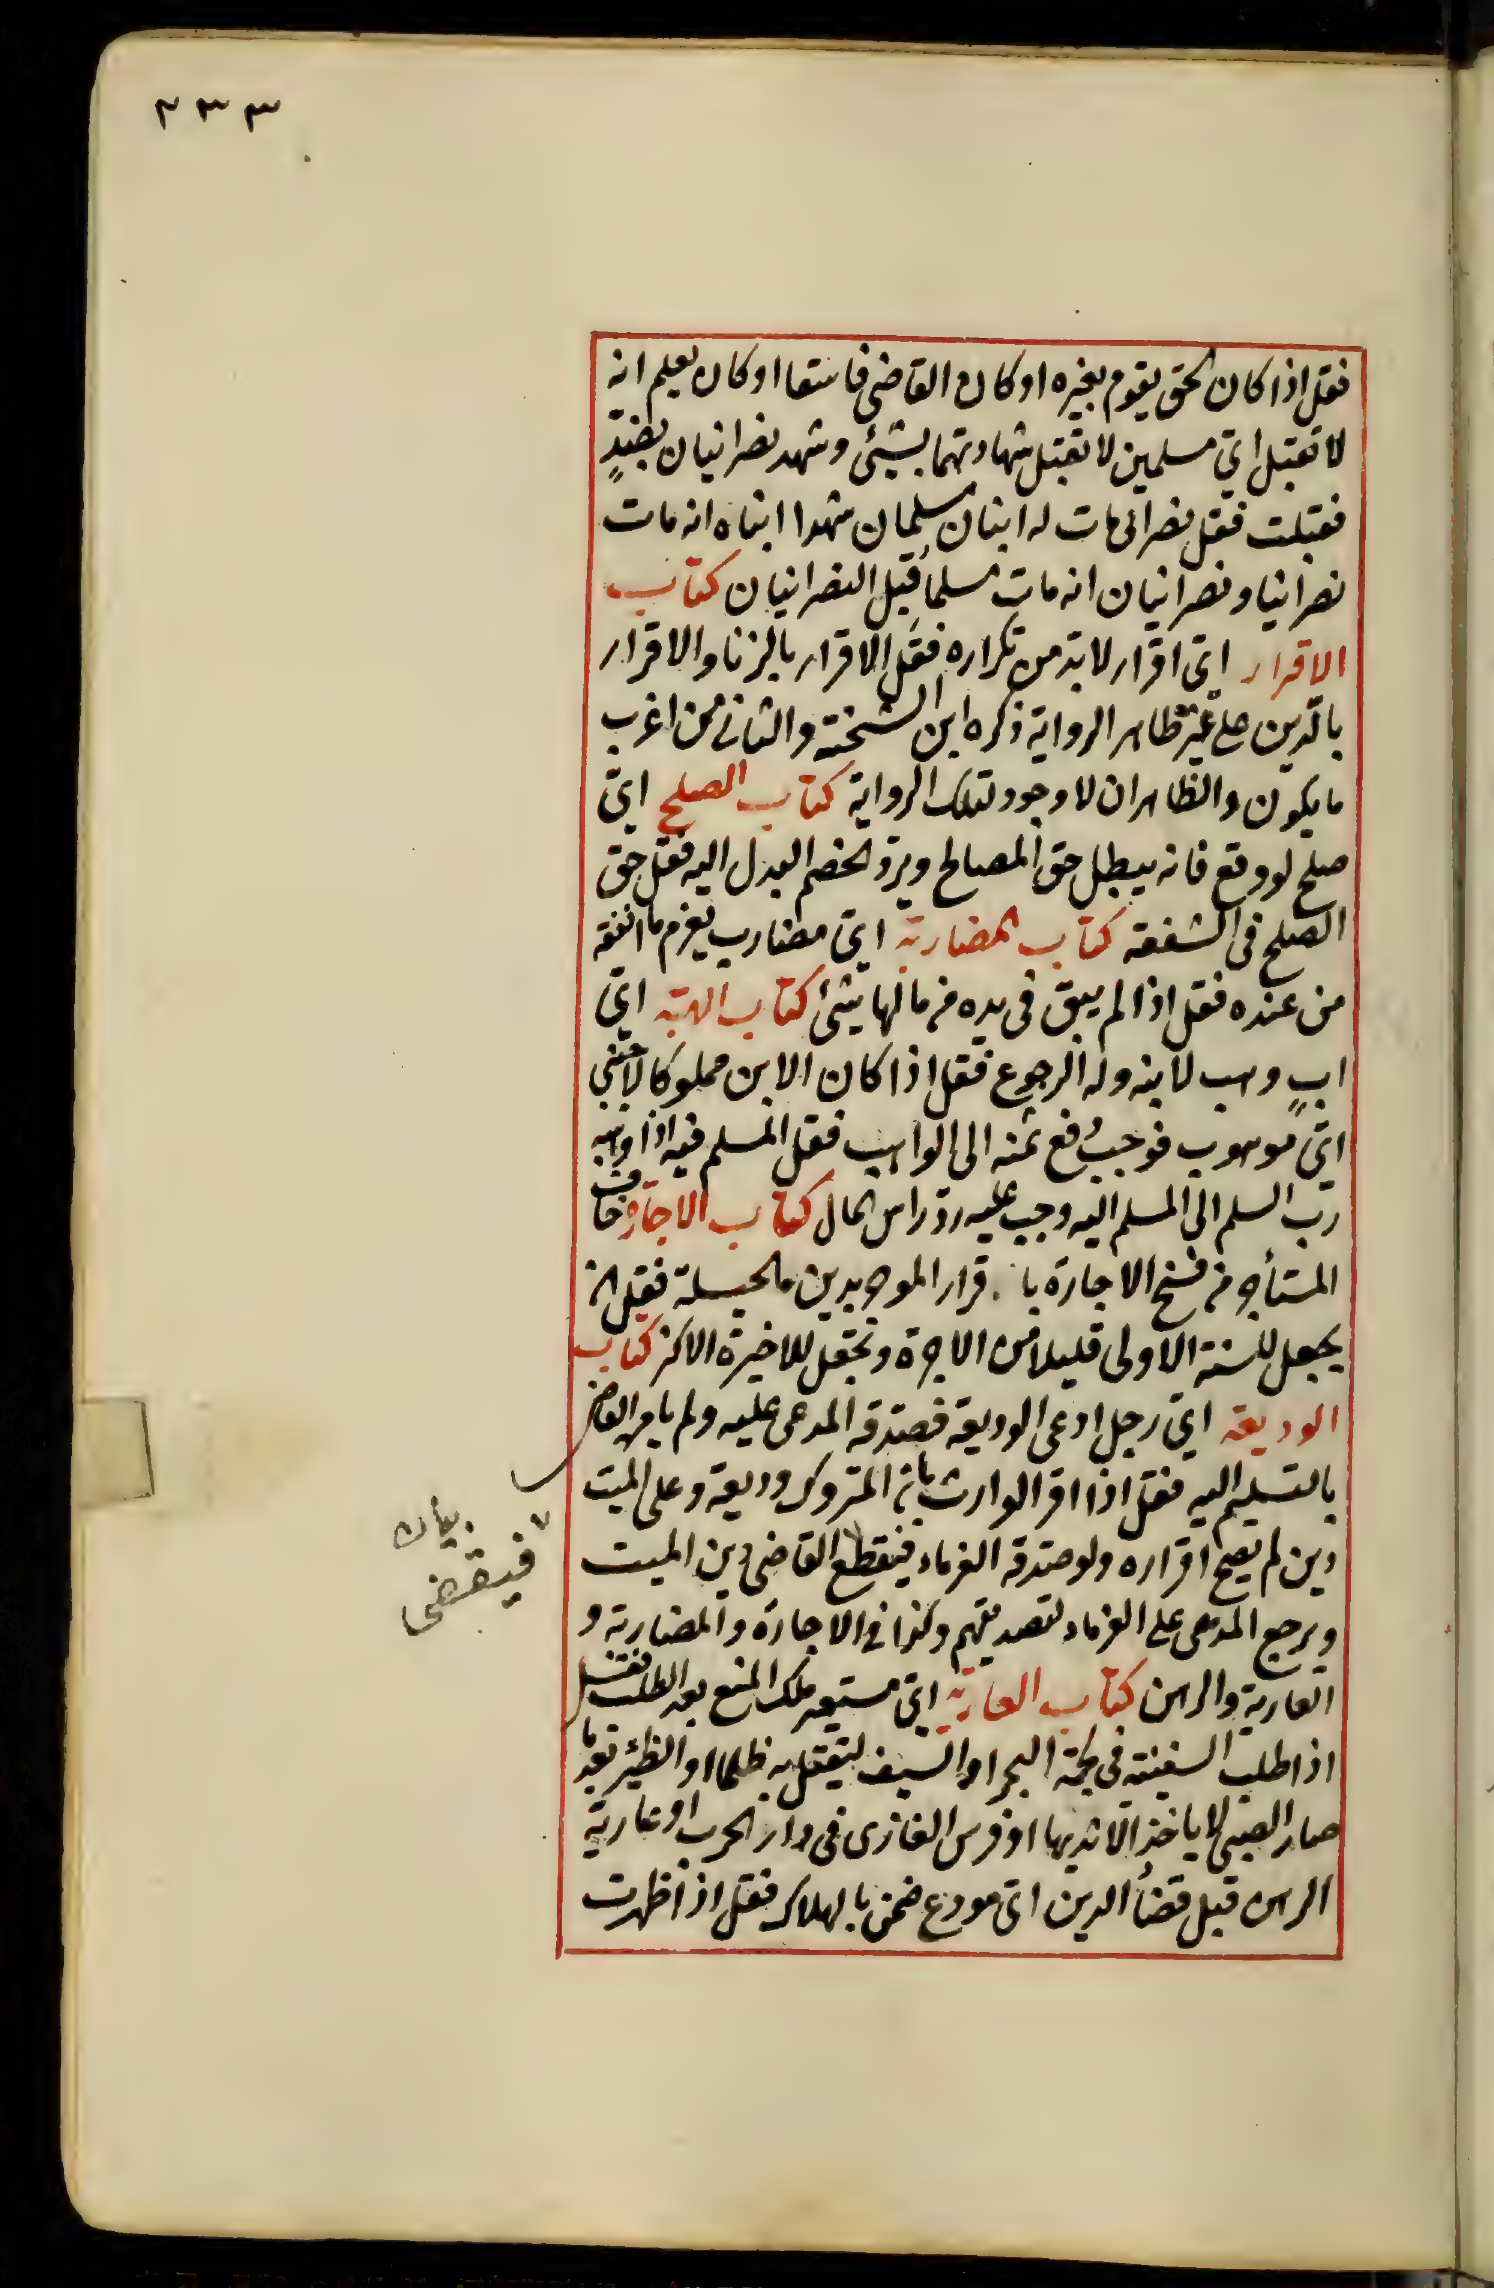 ٢٣٣
فقل اذا كان الحق يقوم بغيره او كان القاضى فاسقا او كان يعلم انه
لا تقبل اىّ مسلمين لا تقبل شهادتهما بشيئ وشهد نصرانيان بضدٍ
فقبلت فقل نصرانى مات له ابنان مسلمان شهدا ابناه انه مات
نصرانيا ونصرانيان انه مات مسلما قبل النصرانيان كتاب
الاقرار اىّ اقرار لا بدّ من تكراره فقل الاقرار بالزنا والاقرار
بالدّين على غير ظاهر الرواية ذكره ابن الشحنة والثانى من اغرب
ما يكون والظاهر ان لا وجود لتلك الرواية كتاب الصلح اىّ
صلح لو وقع فانه يبطل حق المصالح ويردّ الخصم البدل اليه فقل حق
الصلح فى الشفعه كتاب المضاربة اىّ مضارب يغرم ما انفقه
من عنده فقل اذا لم يبق فى يده من مالها شئ كتاب الهبة اىّ
ابٍ وهب لابنه وله الرجوع فقل اذا كان الابن مملوكا لاجنبي
اىّ موهوب فوجب دفع ثمنه الى الواهب فقل المسلم فيه اذا وهبه
ربّ السلم الى المسلم اليه وجب عليه ردّ راس المال كتاب الاجارة خاف
المستأجر من فسخ الاجارة با قرار الموجر بدين ما الحيلة فقل ان
يجعل للسنة الاولى قليلا من الاجرة وتجعل للاخيرة الاكثر كتاب
الوديعه اىّ رجل ادعى الوديعة فصدقه المدعى عليه ولم يامر القاضى
بالتسليم اليه فقل اذا اقر الوارث بان المتروك وديعة وعلى الميت
دين لم يصح اقراره ولو صدقه الغرماء فيقطع القاضى دين الميت
ويرجع المدعى على الغرماء لتصديقهم وكذا فى الاجارة والمضاربة و
العارية والرهن كتاب العارية اىّ مستعير ملك المنع بعد الطلب فقل
اذا طلب السفينة فى لجة البحر او السيف ليقتل به ظلما او الظئر بعد ما
صار الصبى لا ياخذ الا ثديها او فرس الغازى فى دار الحرب او عارية
الرهن قبل قضاء الدين اىّ مودع ضمن بالهلاك فقل اذا ظهرت
بيان
فيقضى